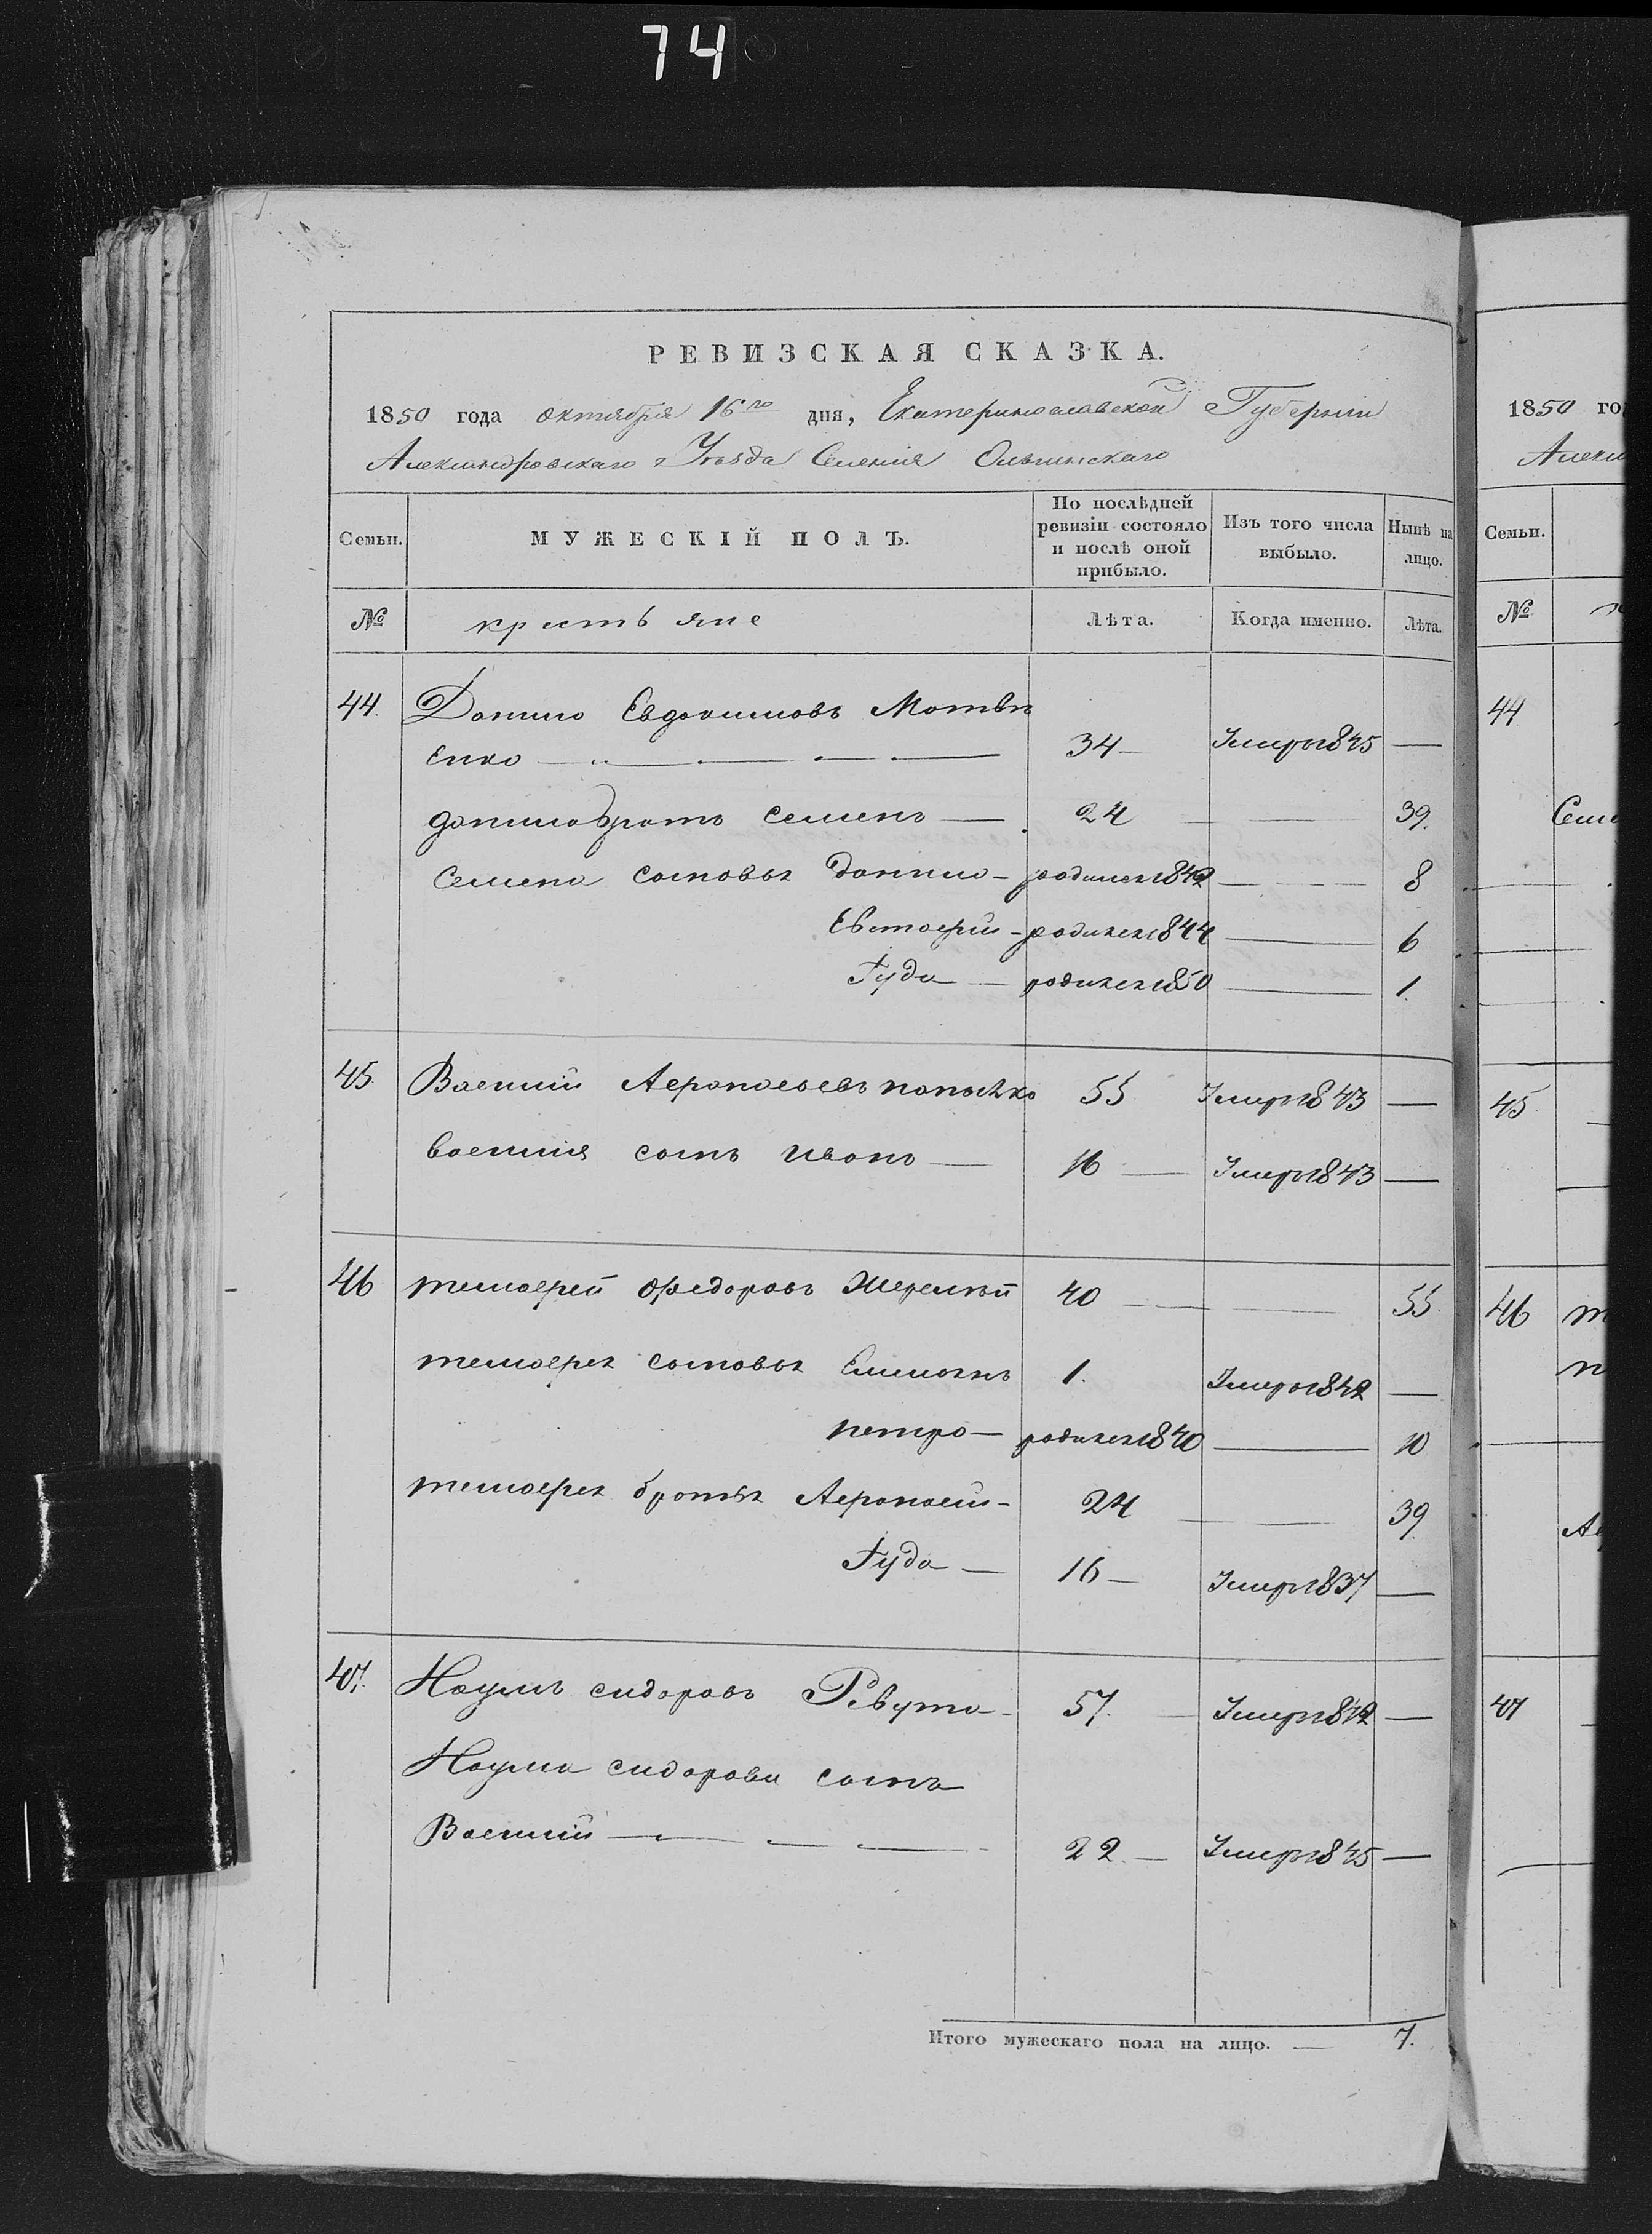 74
РЕВИЗСКАЯ СКАЗКА.
1850 года октября 16го дня, Екатеринославской Губернии
Александровскаго Уѣзда Селенія Ольгинскаго
Семьи. МУЖЕСКІЙ ПОЛЪ. По послѣдней ревизіи состояло и послѣ оной прибыло. Изъ того числа выбыло. Нынѣ на лицо.
№ крестьяне Лѣта. Когда именно. Лѣта.
44. Данило Евдокимовъ Матвѣ
енко — 34 — Умеръ 1845 —
данила братъ Семенъ — 24 — 39.
Семена сыновья Данило — родился 1842 — 8
Евстафій — родился 1844 — 6
Іуда — родился 1850 — 1.
45. Василий Афанасьевъ 55 Умеръ 1843 —
василия сынъ иванъ — 16 — Умеръ 1843 —
46 тимофей Федоровъ 40 — 55.
тимофея сыновья Емельянъ 1. Умеръ 1842 —
петро — родился 1840 — 10
тимофея братья Афанасий — 24 — 39.
Іуда — 16 — Умеръ 1837 —
47. Наумъ сидоровъ Ревута — 57. — Умеръ 1842 —
Наума сидорова сынъ
Василий — 22. — Умеръ 1845 —
Итого мужескаго пола на лицо. — 7.
1850 го
Алекс
Семьи.
№
44
Семе
45
46
47